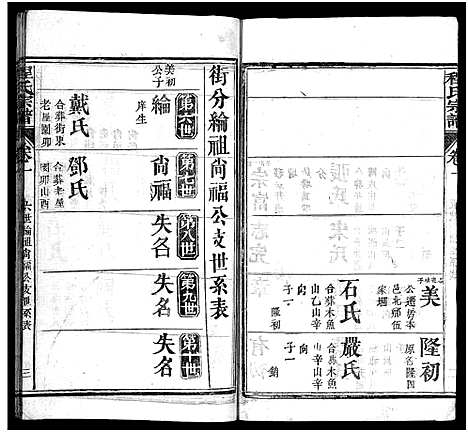 程氏宗譜
卷一
美
隆初
原名隆四
公遷竹本
邑北鄉伍
家壪
石氏
合葬木魚
山乙山辛
向
子一
隆初
嚴氏
合葬木魚
山辛山辛
向
子一
綃
街分綸祖尚福公支世系表
第六世
第七世
第八世
第九世
第十世
美初
公子
綸
庠生
尚福
失名
失名
失名
戴氏
合葬街東
老屋園卯
鄧氏
合葬老屋
園卯山酉
程氏宗譜
卷一
六世綸祖尚福公支世系表
三